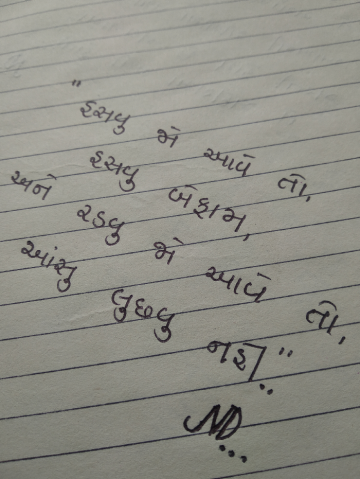 "હસવુ જો આવે તો,
હસવુ બેફામ,
અને રડવુ જો આવે તો,
આંસુ લુછવુ નહી"..
ND...